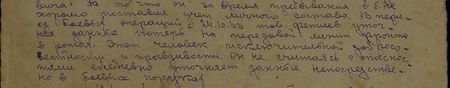 вича за то что он за время пребывания в б-не
хорошо поставил учет личного состава. В пери-
од боевых операций с 31.10.43 тов. уточ-
нял данные потерь на передовой линии фронта
в ротах. Этот человек исключительной добросо-
вестности и правдивости. Он не считаясь с опаснос-
тями ежедневно уточняет данные непосредствен-
но в боевых порядках